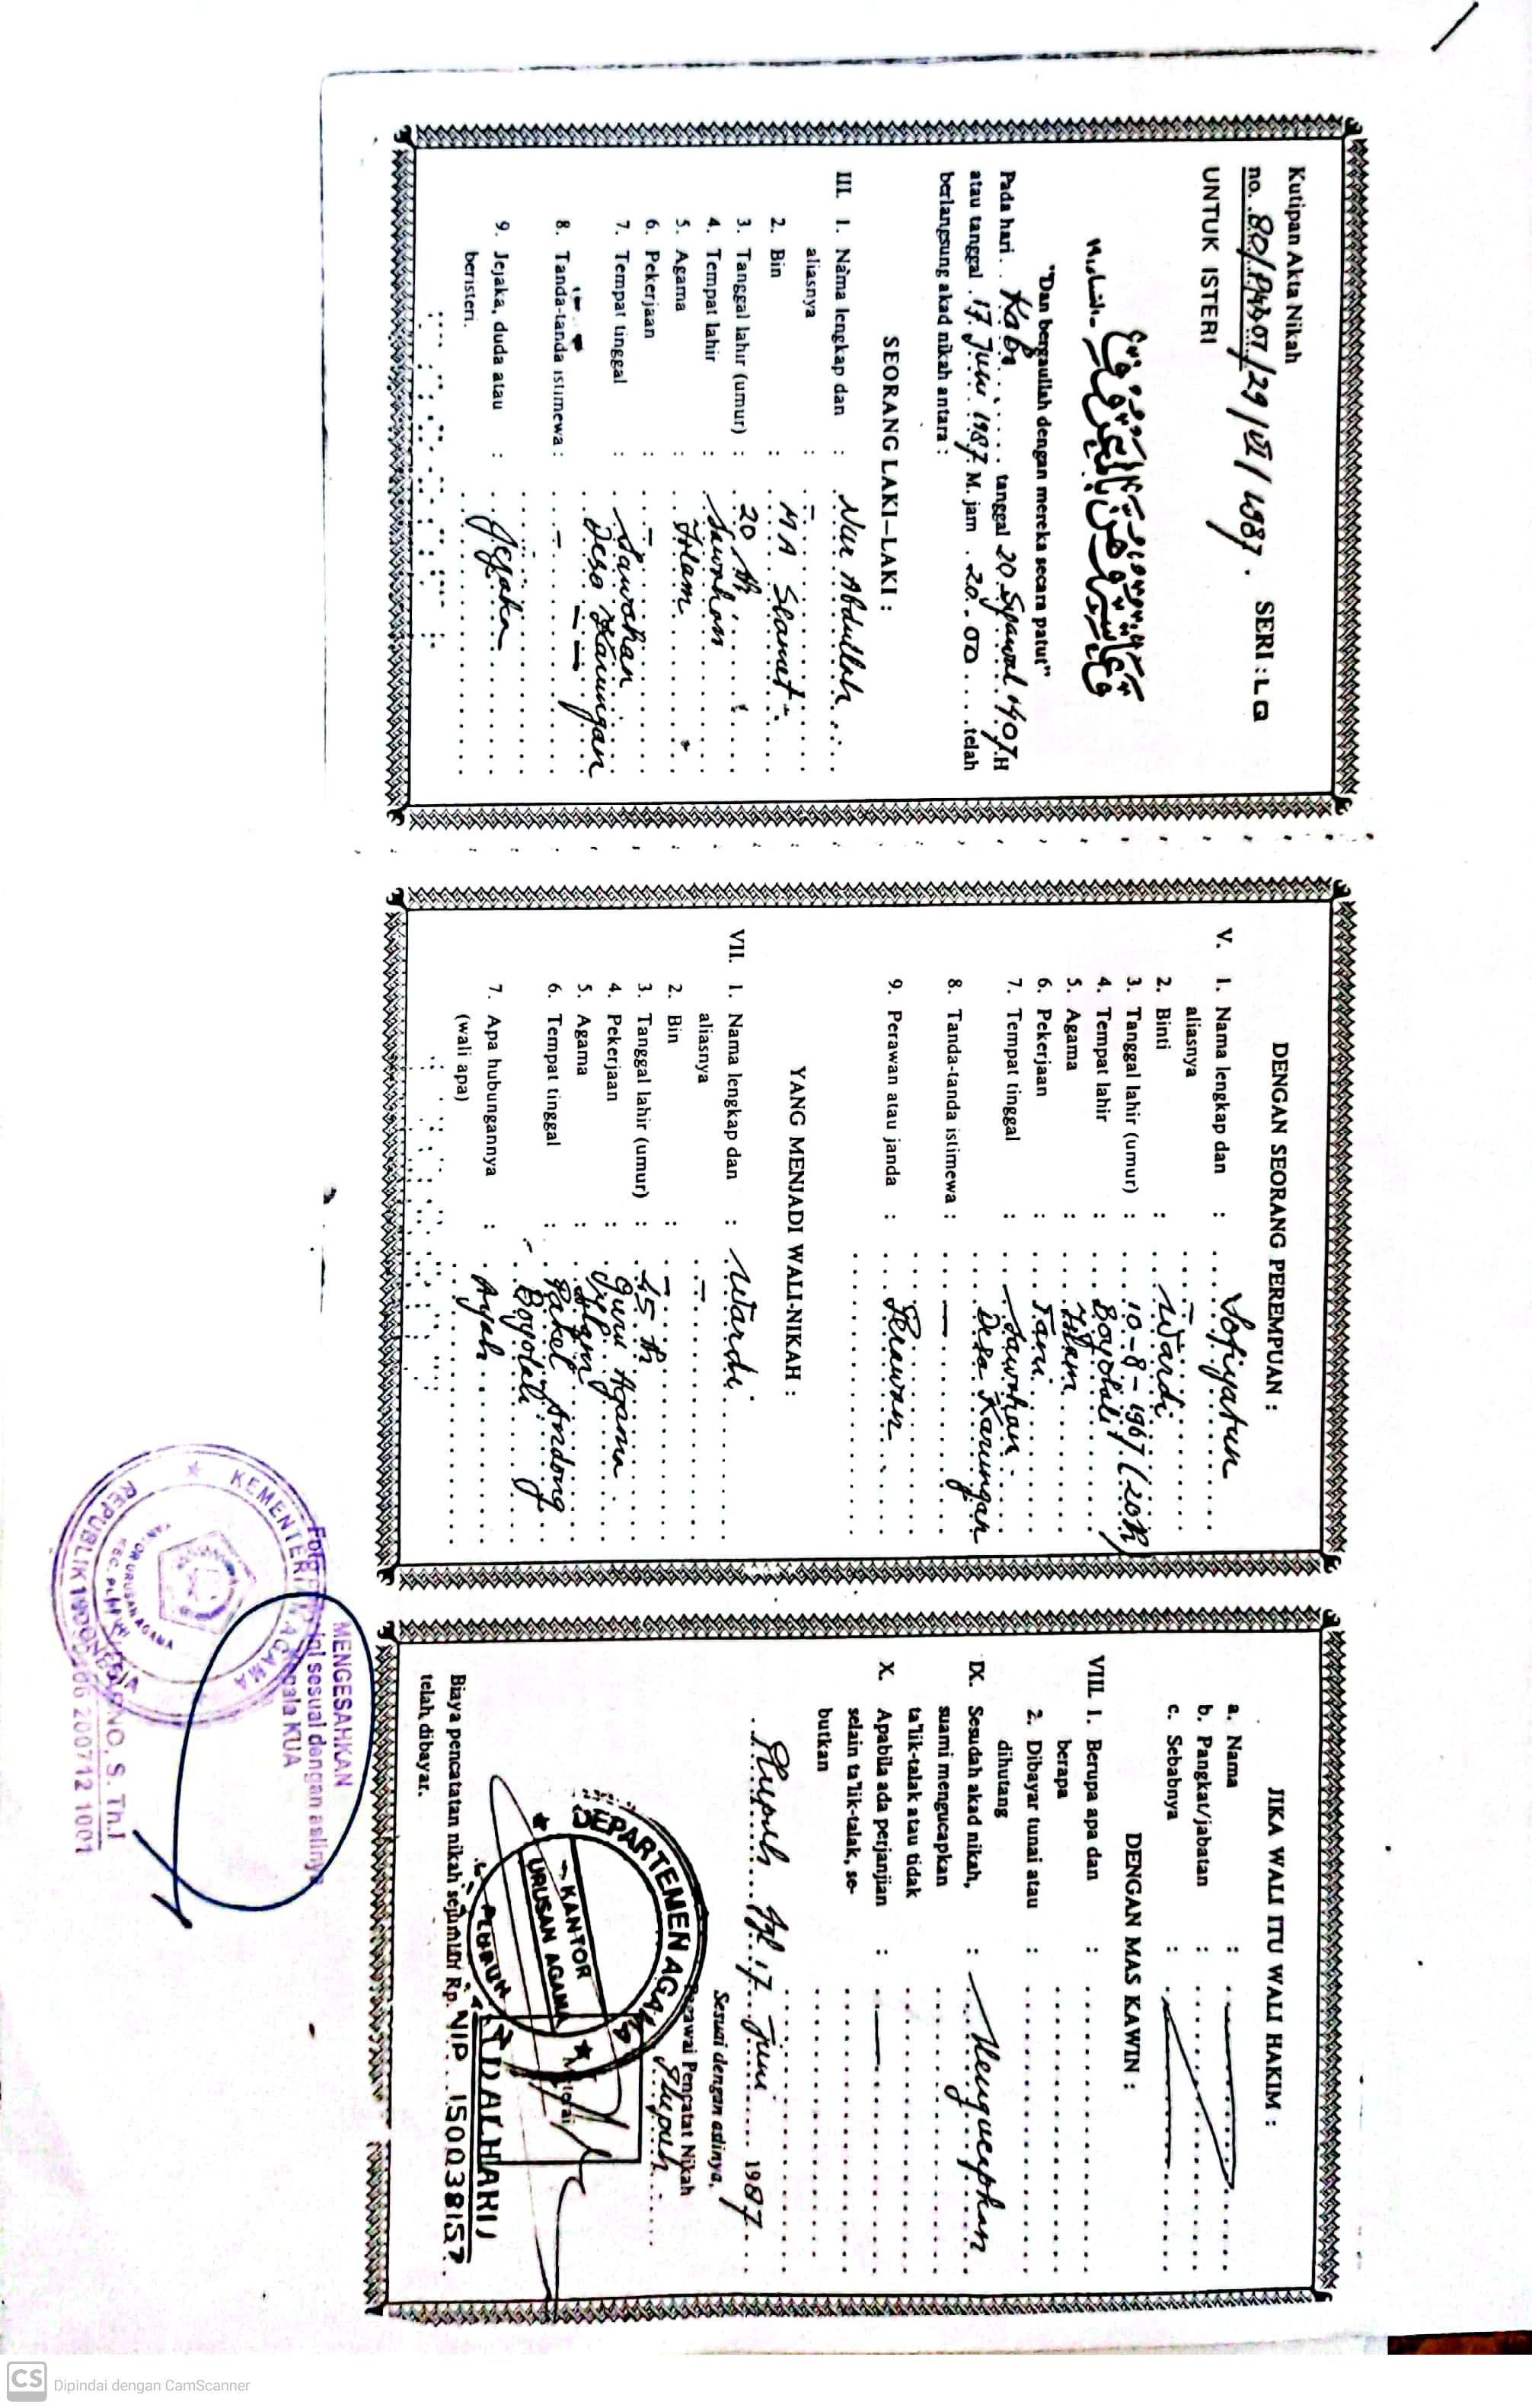 Kutipan Akta Nikah
no. 80/ /29/VI/1987. SERI : L Q
UNTUK ISTERI
وَعَاشِرُوهُنَّ بِالْمَعْرُوفِ - النساء ١٩
"Dan bergaullah dengan mereka secara patut"
Pada hari . . Rabu . . . . tanggal 20 Syawal 1407.H
atau tanggal . 17 Juni 1987. M. jam . 20.00 . . . . telah
berlangsung akad nikah antara :
SEORANG LAKI-LAKI :
III. 1. Nama lengkap dan : Nur Abdullah
aliasnya : -
2. Bin : MA Slamet
3. Tanggal lahir (umur) : 20 th
4. Tempat lahir : Sawahan
5. Agama : Islam
6. Pekerjaan : -
7. Tempat tinggal : Sawahan
Desa Karungan
8. Tanda-tanda istimewa : -
9. Jejaka, duda atau : Jejaka
beristeri.
DENGAN SEORANG PEREMPUAN :
V. 1. Nama lengkap dan : Sofiyatun
aliasnya : -
2. Binti : Wardi
3. Tanggal lahir (umur) : 10-8-1967 (20 th)
4. Tempat lahir : Boyolali
5. Agama : Islam
6. Pekerjaan : Tani
7. Tempat tinggal : Sawahan
Desa Karungan
8. Tanda-tanda istimewa : —
9. Perawan atau janda : Perawan
YANG MENJADI WALI-NIKAH :
VII. 1. Nama lengkap dan : Wardi
aliasnya : -
2. Bin : -
3. Tanggal lahir (umur) : 45 th
4. Pekerjaan : Guru Agama
5. Agama : Islam
6. Tempat tinggal : Pakel Andong
Boyolali
7. Apa hubungannya : Ayah
(wali apa)
JIKA WALI ITU WALI HAKIM :
a. Nama :
b. Pangkat/jabatan :
c. Sebabnya :
DENGAN MAS KAWIN :
VIII. 1. Berupa apa dan :
berapa
2. Dibayar tunai atau :
dihutang
IX. Sesudah akad nikah, : Mengucapkan
suami mengucapkan
ta'lik-talak atau tidak
X. Apabila ada perjanjian : —
selain ta'lik-talak, se-
butkan
Plupuh tgl 17 Juni 1987
Sesuai dengan aslinya,
Pegawai Pencatat Nikah
Plupuh
Meterai
DEPARTEMEN AGAMA
KANTOR
URUSAN AGAMA
DALHARI
NIP 150038157
Biaya pencatatan nikah sejumlah Rp.
telah dibayar.
MENGESAHKAN
sesuai dengan aslinya
Kepala KUA
KEMENTERIAN AGAMA
KANTOR URUSAN AGAMA
REPUBLIK INDONESIA
S. Th.I
200712 1001
CS Dipindai dengan CamScanner